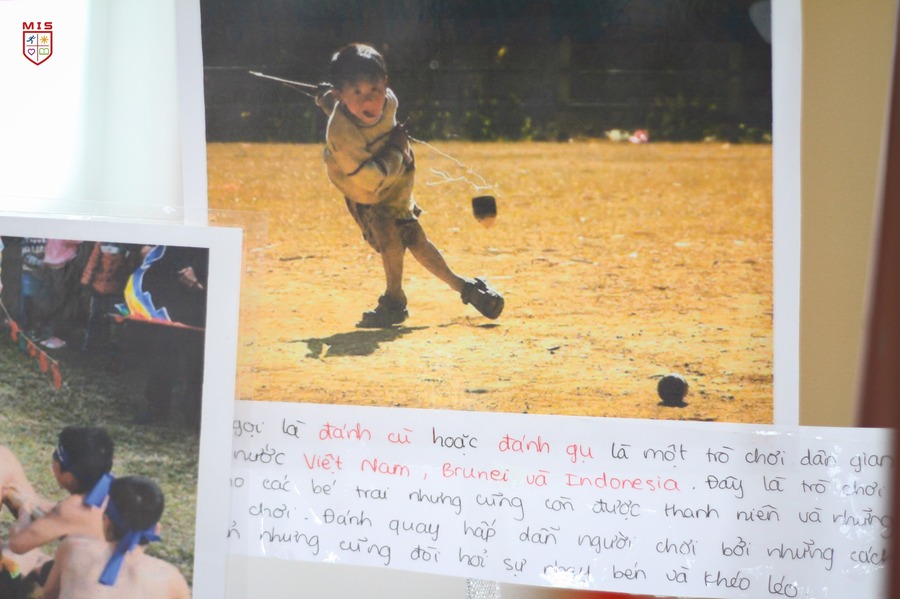 MIS
gọi là đánh cù hoặc đánh gụ là một trò chơi dân gian
nước Việt Nam, Brunei và Indonesia. Đây là trò chơi
các bé trai nhưng cũng còn được thanh niên và những
chơi. Đánh quay hấp dẫn người chơi bởi những cách
nhưng cũng đòi hỏi sự nhạy bén và khéo léo